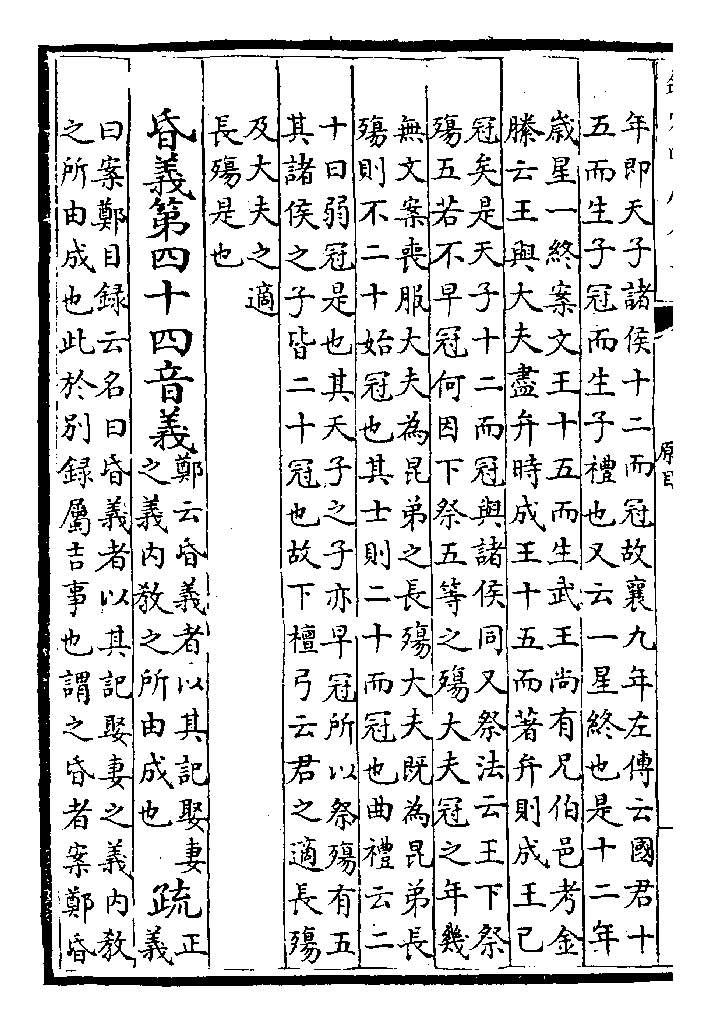 年即天子諸侯十二而冠故襄九年左傳云國君十
五而生子冠而生子禮也又云一星終也是十二年
歲星一終案文王十五而生武王尚有兄伯邑考金
縢云王與大夫盡弁時成王十五而著弁則成王已
冠矣是天子十二而冠與諸侯同又祭法云王下祭
殤五若不早冠何因下祭五等之殤大夫冠之年幾
無文案喪服大夫為昆弟之長殤大夫既為昆弟長
殤則不二十始冠也其士則二十而冠也曲禮云二
十曰弱冠是也其天子之子亦早冠所以祭殤有五
其諸侯之子皆二十冠也故下檀弓云君之適長殤
及大夫之適
長殤是也
昏義第四十四音義
鄭云昏義者以其記娶妻
之義内教之所由成也
疏
正
義
曰案鄭目録云名曰昏義者以其記娶妻之義内教
之所由成也此於别録屬吉事也謂之昏者案鄭昏
原目